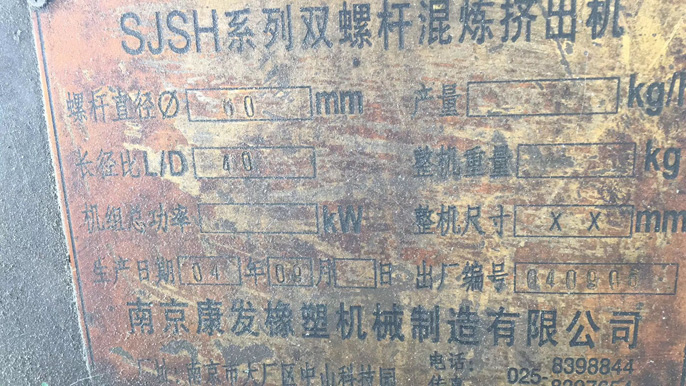 SJSH系列双螺杆混炼挤出机
螺杆直径Ø 60 mm 产量 kg/
长径比L/D 40 整机重量 kg
机组总功率 kW 整机尺寸 X X mm
生产日期 04 年 09 月 日 出厂编号
南京康发橡塑机械制造有限公司
厂址:南京市大厂区中山科技园 电话: 025- 8398844
传真